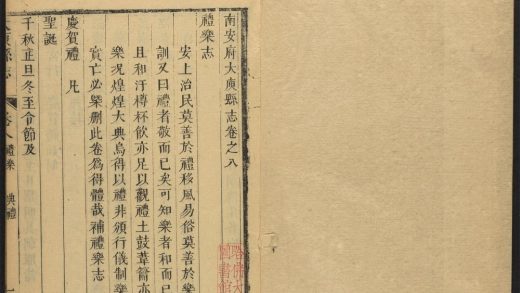 南安府大庾縣志卷之八
禮樂志
安上治民莫善於禮移風易俗莫善於樂
訓又曰禮者敬而已矣可知樂者和而已
且和汙樽杯飲亦足以觀禮土鼓葦籥亦
樂況煌煌大典烏得以禮非頒行儀制樂
實亡必槩刪此卷爲得體哉補禮樂志
慶賀禮 凡
聖誕
千秋正旦冬至令節及
大庾縣志 卷八 禮樂 典禮 一
哈佛大
圖書館